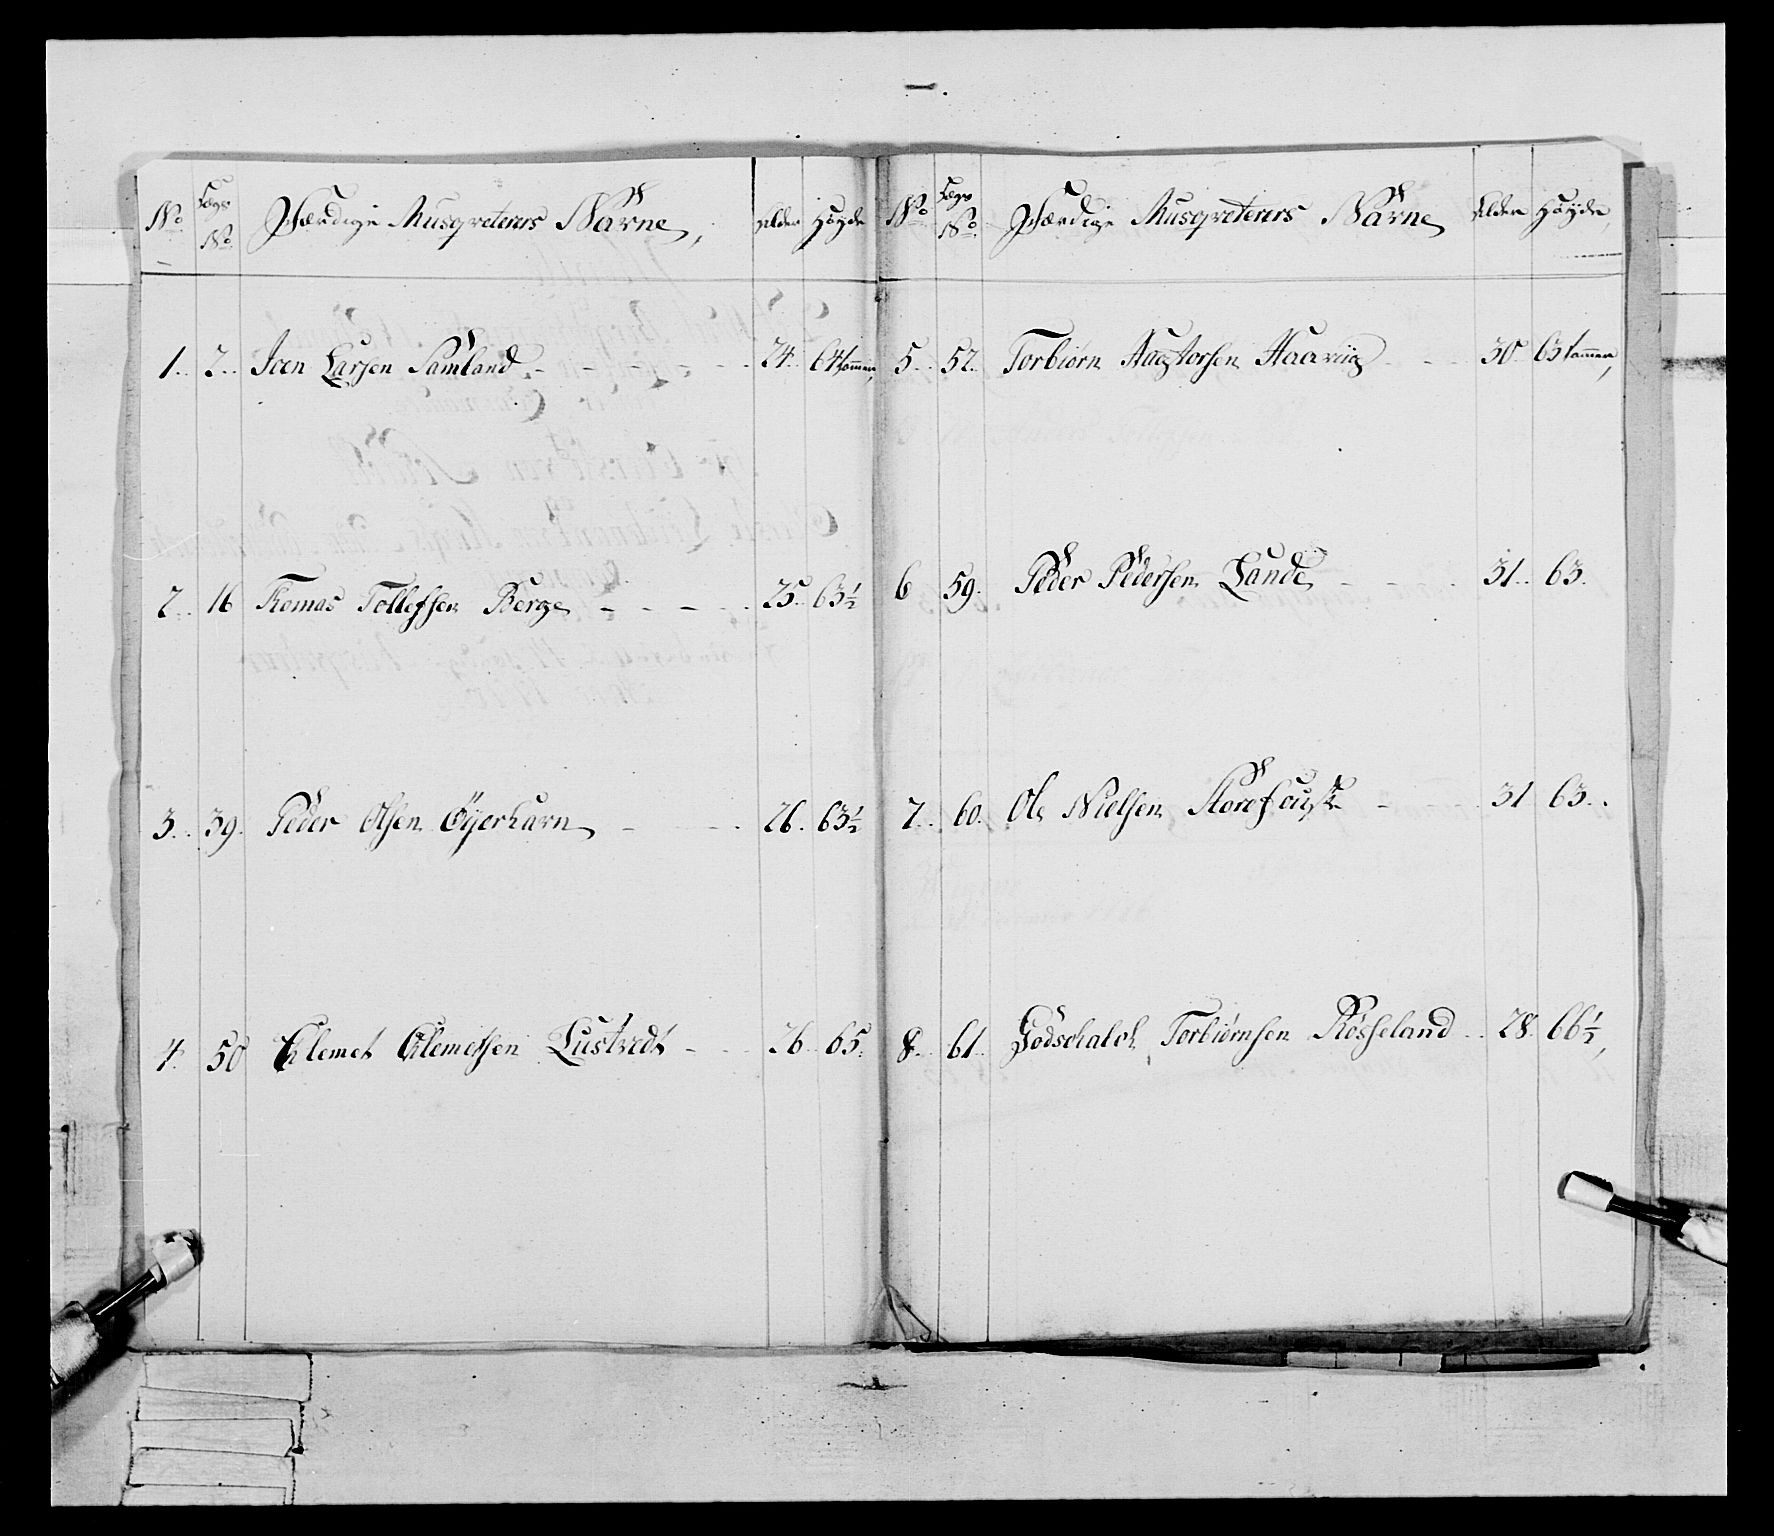 No. Lægs No. Færdige Musqveterers Navne, Alder Høyde
1. 2. Joen Larsen Samland 24. 64 tommer,
2. 16 Thomas Tollefsen Berge 25. 63½
3. 39. Peder Olsen Øyerhavn 26. 63½
4. 50 Clemet Clemetsen Lustvedt 26. 65.
No. Lægs No. Færdige Musqveterers Navne Alder Høyde,
5. 52. Torbiørn 30. 63 tommer,
6 59. Peder Pedersen Lande 31. 63.
7. 60. Ole Nielsen 31 63.
8. 61. Godschalch Torbiørnsen Røsseland 28. 66½,